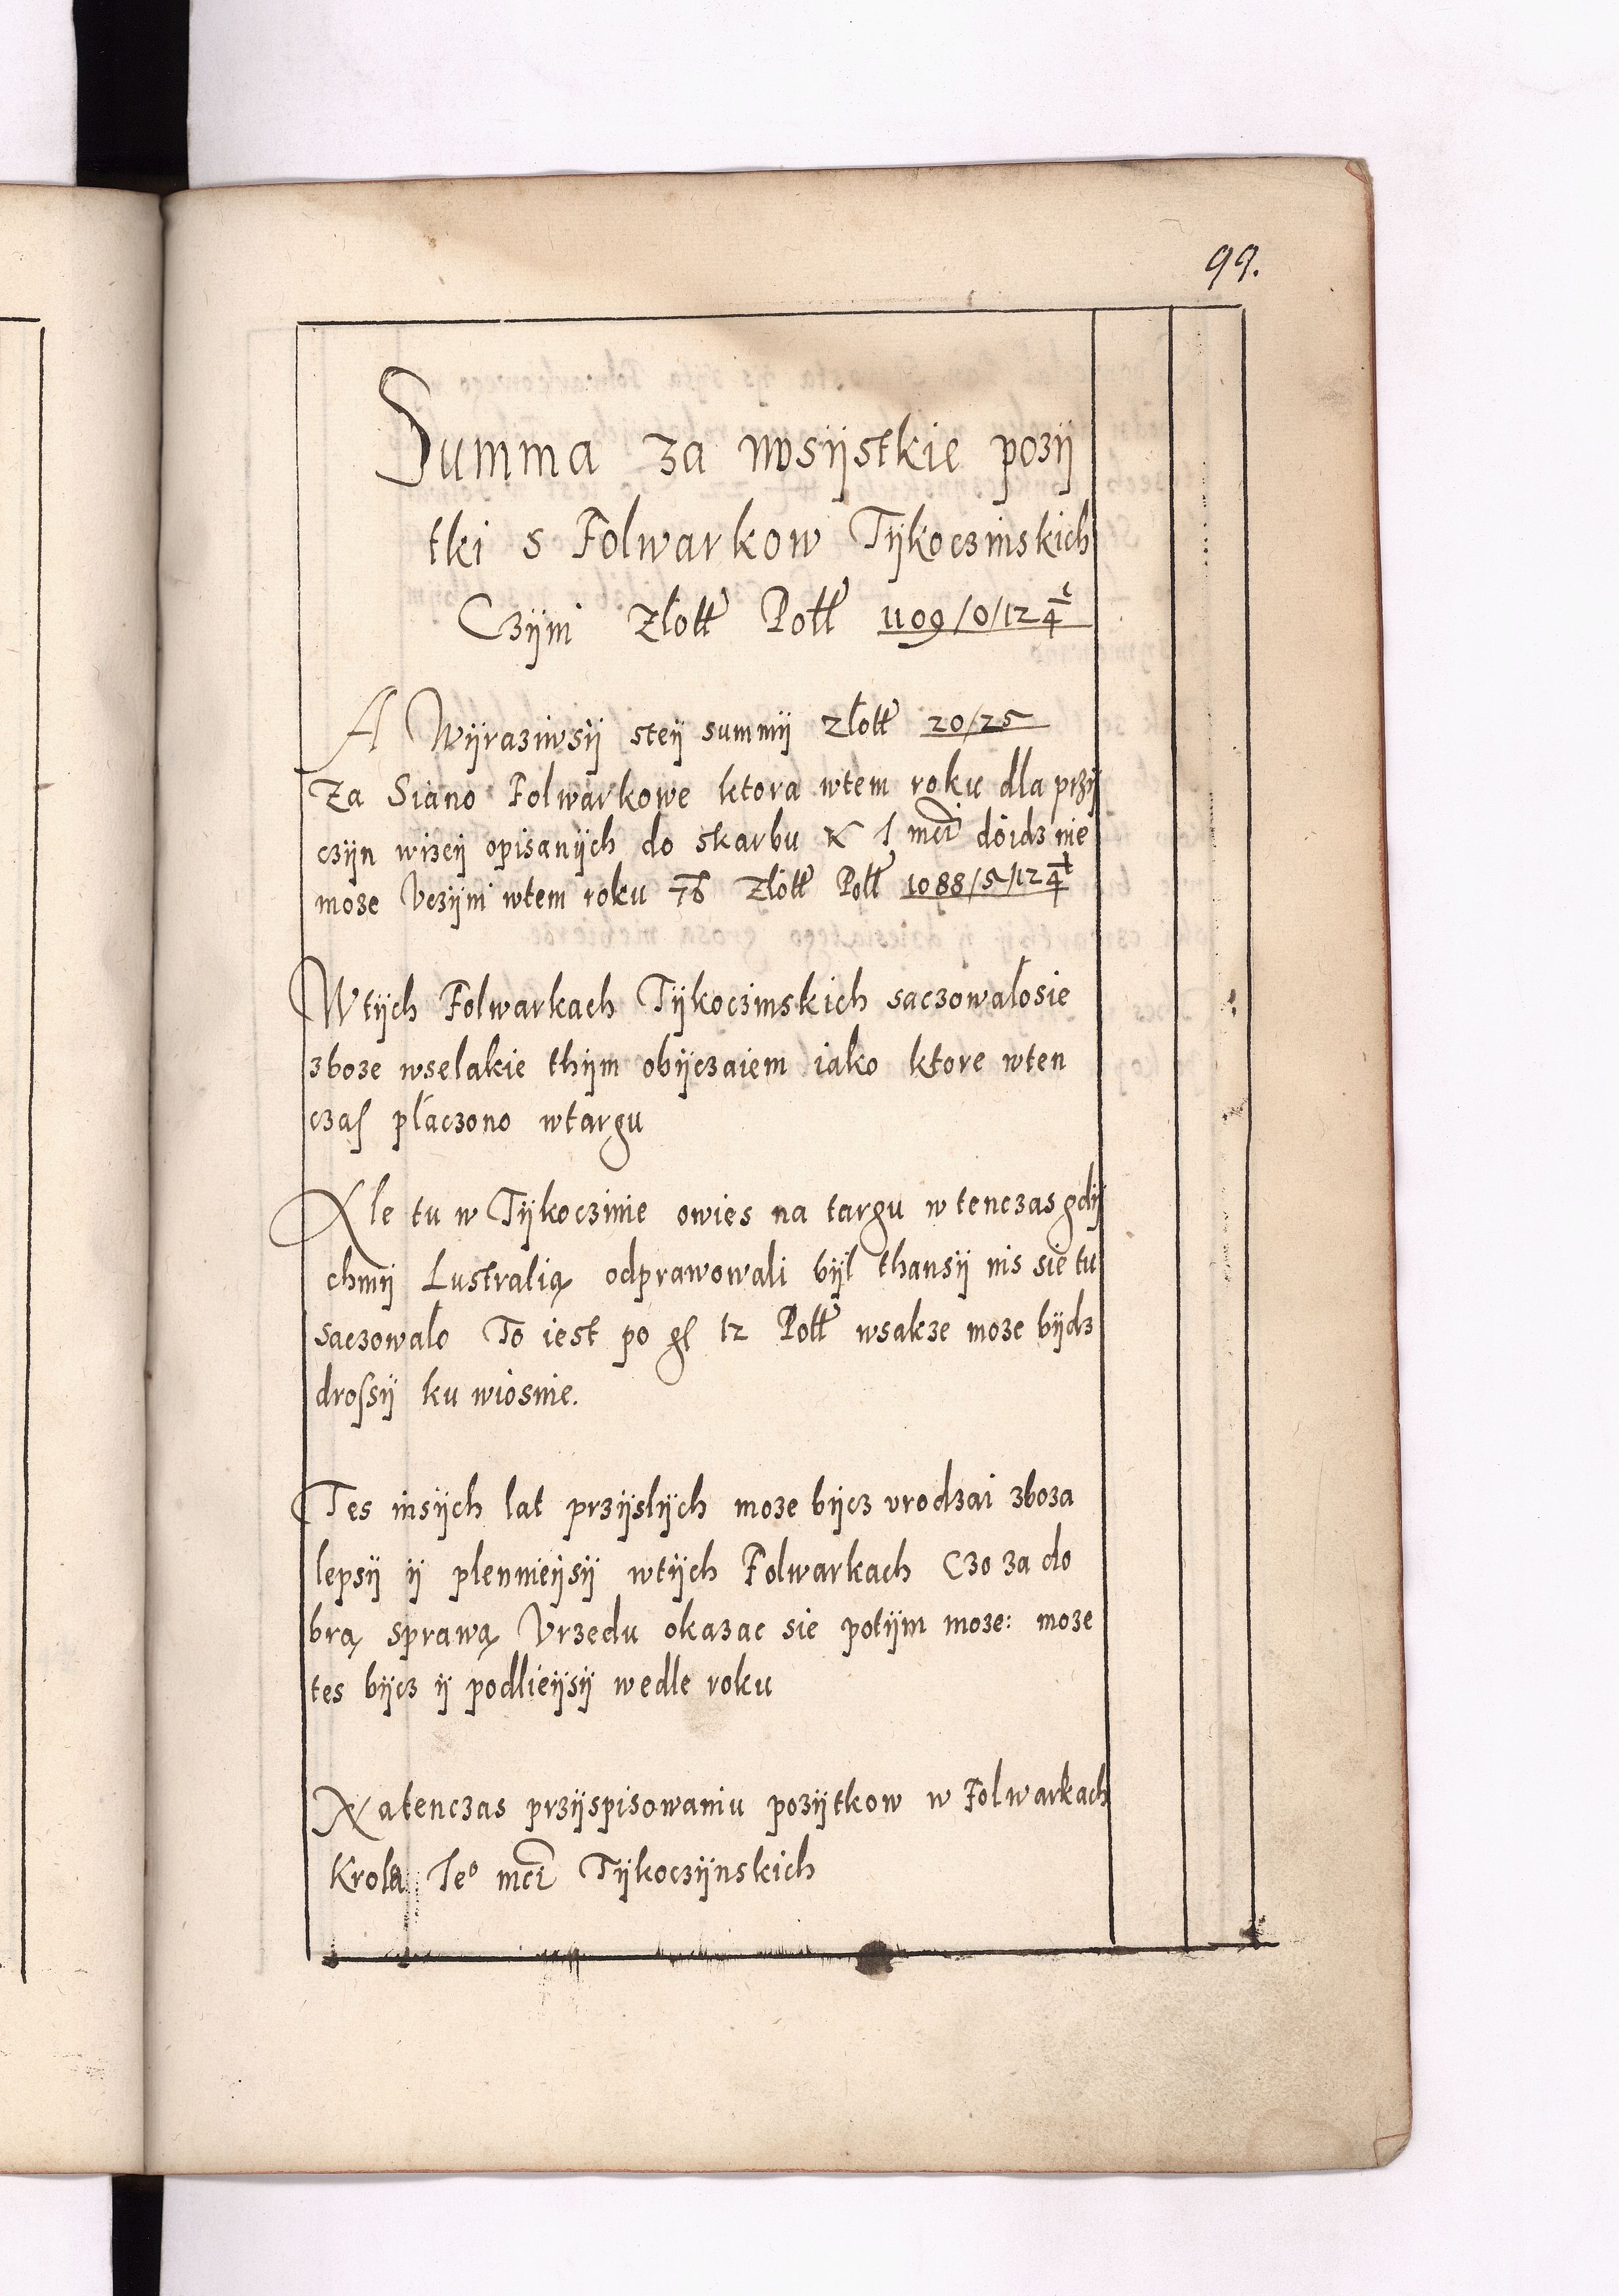 99.
Summa za wssÿstkie pozÿ
tki s Folwarkow Tÿkoczinskich
Czÿni Złott Pott 1109/0/12 1/4
A Wÿraziwsÿ steÿ summÿ złott 20/25
Za Siano Folwarkowe ktora wtem roku dla przÿ
czÿn wizeÿ opisanÿch do skarbu K J mci doidz nie
moze Vczÿni wtem roku 76 Złott Pott 1088/5/12 1/4
Wtÿch Folwarkach Tÿkoczinskich saczowałosie
zboze wselakie thÿm obÿczaiem iako ktore wten
czas płaczono wtargu
Ale tu w Tÿkoczinie owies na targu w tenczas gdÿ
chmÿ Lustralią odprawowali bÿł thansÿ nis sie tu
saczowało To iest po gſ 12 Pott wsakze moze bÿdz
drossÿ ku wiosnie.
Tes insÿch lat przÿsłÿch moze bÿcz vrodzai zboza
lepsÿ ÿ plennieÿsÿ wtÿch Folwarkach Czo za do
brą sprawą Vrzedu okazac sie potÿm moze: moze
tes bÿcz ÿ podlieÿsÿ wedle roku
Natenczas przÿspisowaniu pozÿtkow w Folwarkach
Krola Ieº mci Tÿkoczÿnskich